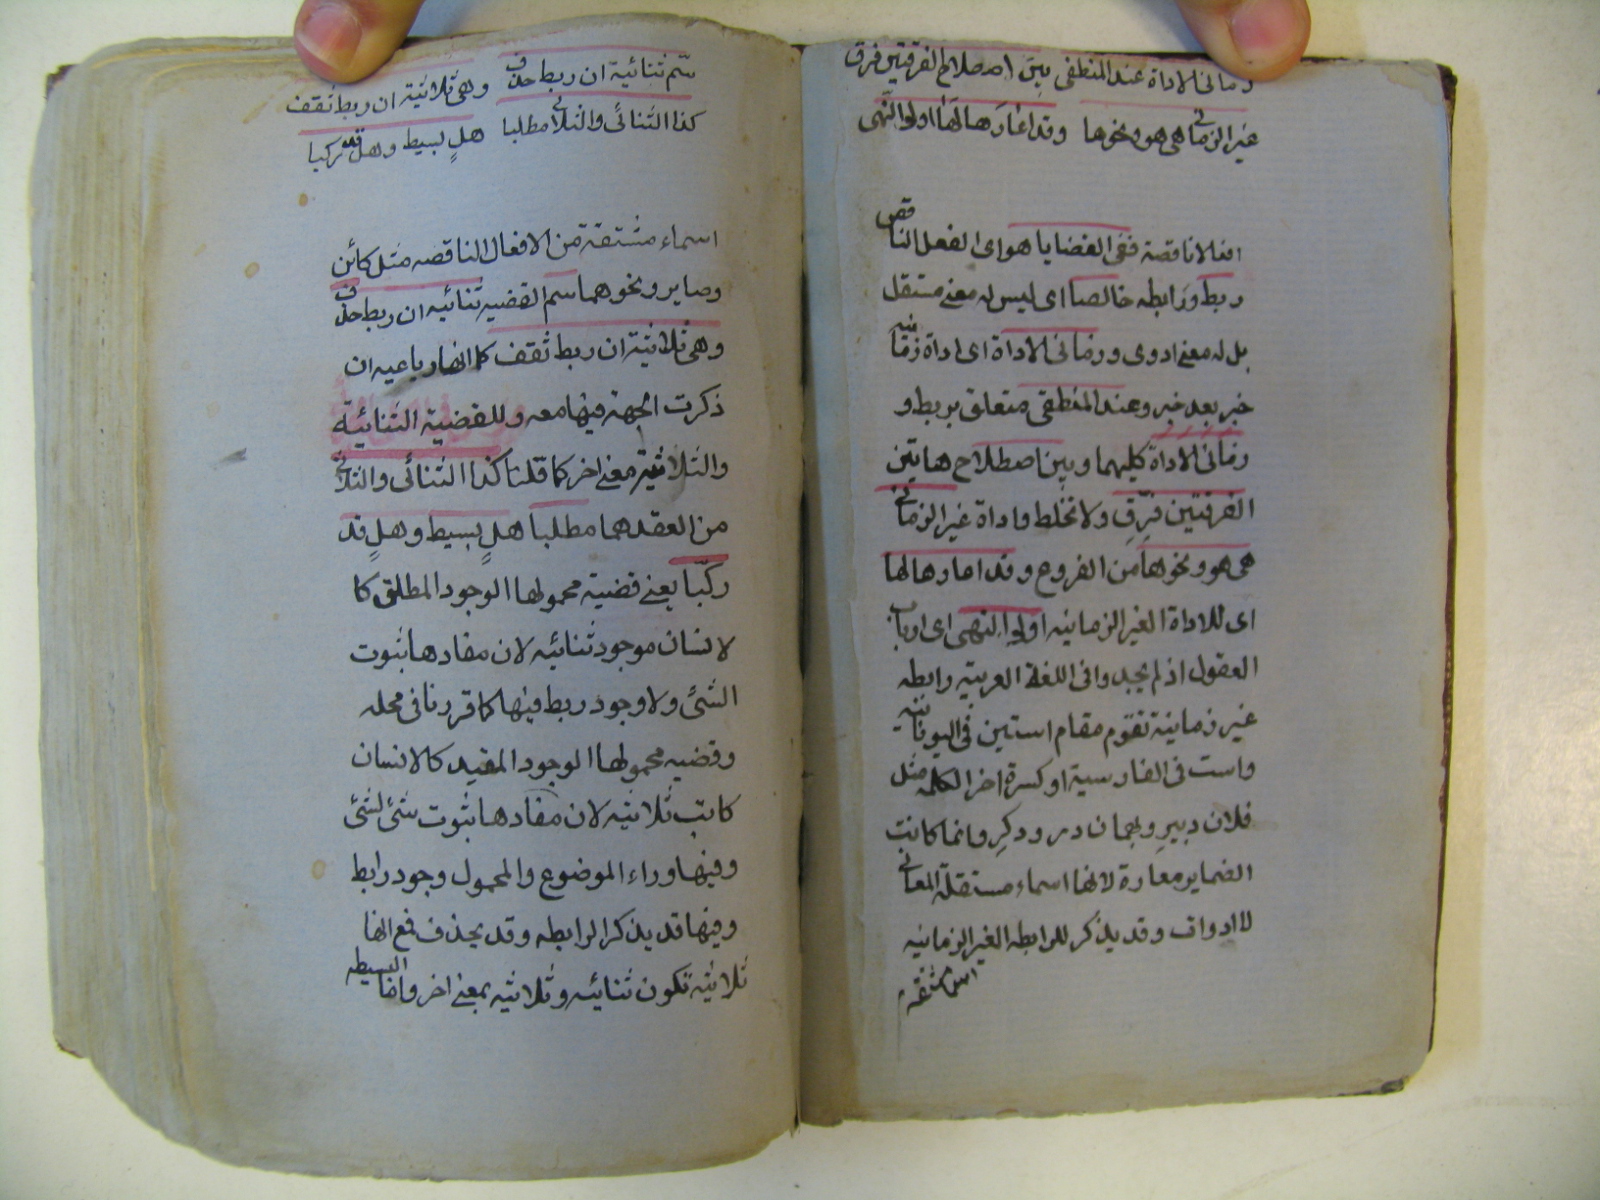 زمانی الاداة عند المنطقی بین اصطلاح الفرقتین فرق
غیر الزمانی هی هو و نحوها وقد اعارها لها اولوا النهی
افعالا ناقصة ففی القضایا هو ای الفعل الناقص
ربط ورابطه خالصا ای لیس له معنی مستقل
بل له معنی ادوی وزمانی الاداة ای اداة زمانیه
خبر بعد خبر وعند المنطقی متعلق بربط و
زمانی الاداة کلیهما وبین اصطلاح هاتین
الفرقتین فرق ولا تخلط واداة غیر الزمانی
هی هو ونحوها من الفروع وقد اعارها لها
ای للاداة الغیر الزمانیه اولوا النهی ای ارباب
العقول اذ لم یجدوا فی اللغة العربیه رابطه
غیر زمانیة تقوم مقام استین فی الیونانیه
واست فی الفارسیة او کسرة اخر الکلمه مثل
فلان دبیر وبهمان در ودکر وانما کانت
الضمایر معارة لانها اسماء مستقلة المعانی
لا ادوات وقد یذکر للرابطه الغیر الزمانیه
اسماء مشتقه
سم ثنائیة ان ربط حذف وهی ثلاثیة ان ربط ثقف
کذا الثنائی والثلاثی مطلبا هل بسیط وهل قد رکبا
اسماء مشتقة من الافعال الناقصه مثل کائن
وصایر ونحوهما سم القضیه ثنائیه ان ربط حذف
وهی ثلاثیة ان ربط ثقف کما انها رباعیه ان
ذکرت الجهة فیها معه وللقضیة الثنائیة
والثلاثیة معنی اخر کما قلنا کذا الثنائی والثلاثی
من العقد هما مطلبا هل بسیط وهل قد
رکبا یعنی قضیة محمولها الوجود المطلق کا
لانسان موجود ثنائیه لان مفادها ثبوت
الشئ ولا وجود ربط فیها کما قررنا فی محله
وقضیه محمولها الوجود المقید کالانسان
کاتب ثلاثیه لان مفادها ثبوت شئ لشئ
وفیها وراء الموضوع والمحمول وجود رابط
وفیها قد یذکر الرابطه وقد یحذف فمع انها
ثلاثیه تکون ثنائیه وثلاثیه بمعنی اخر واما البسیطه